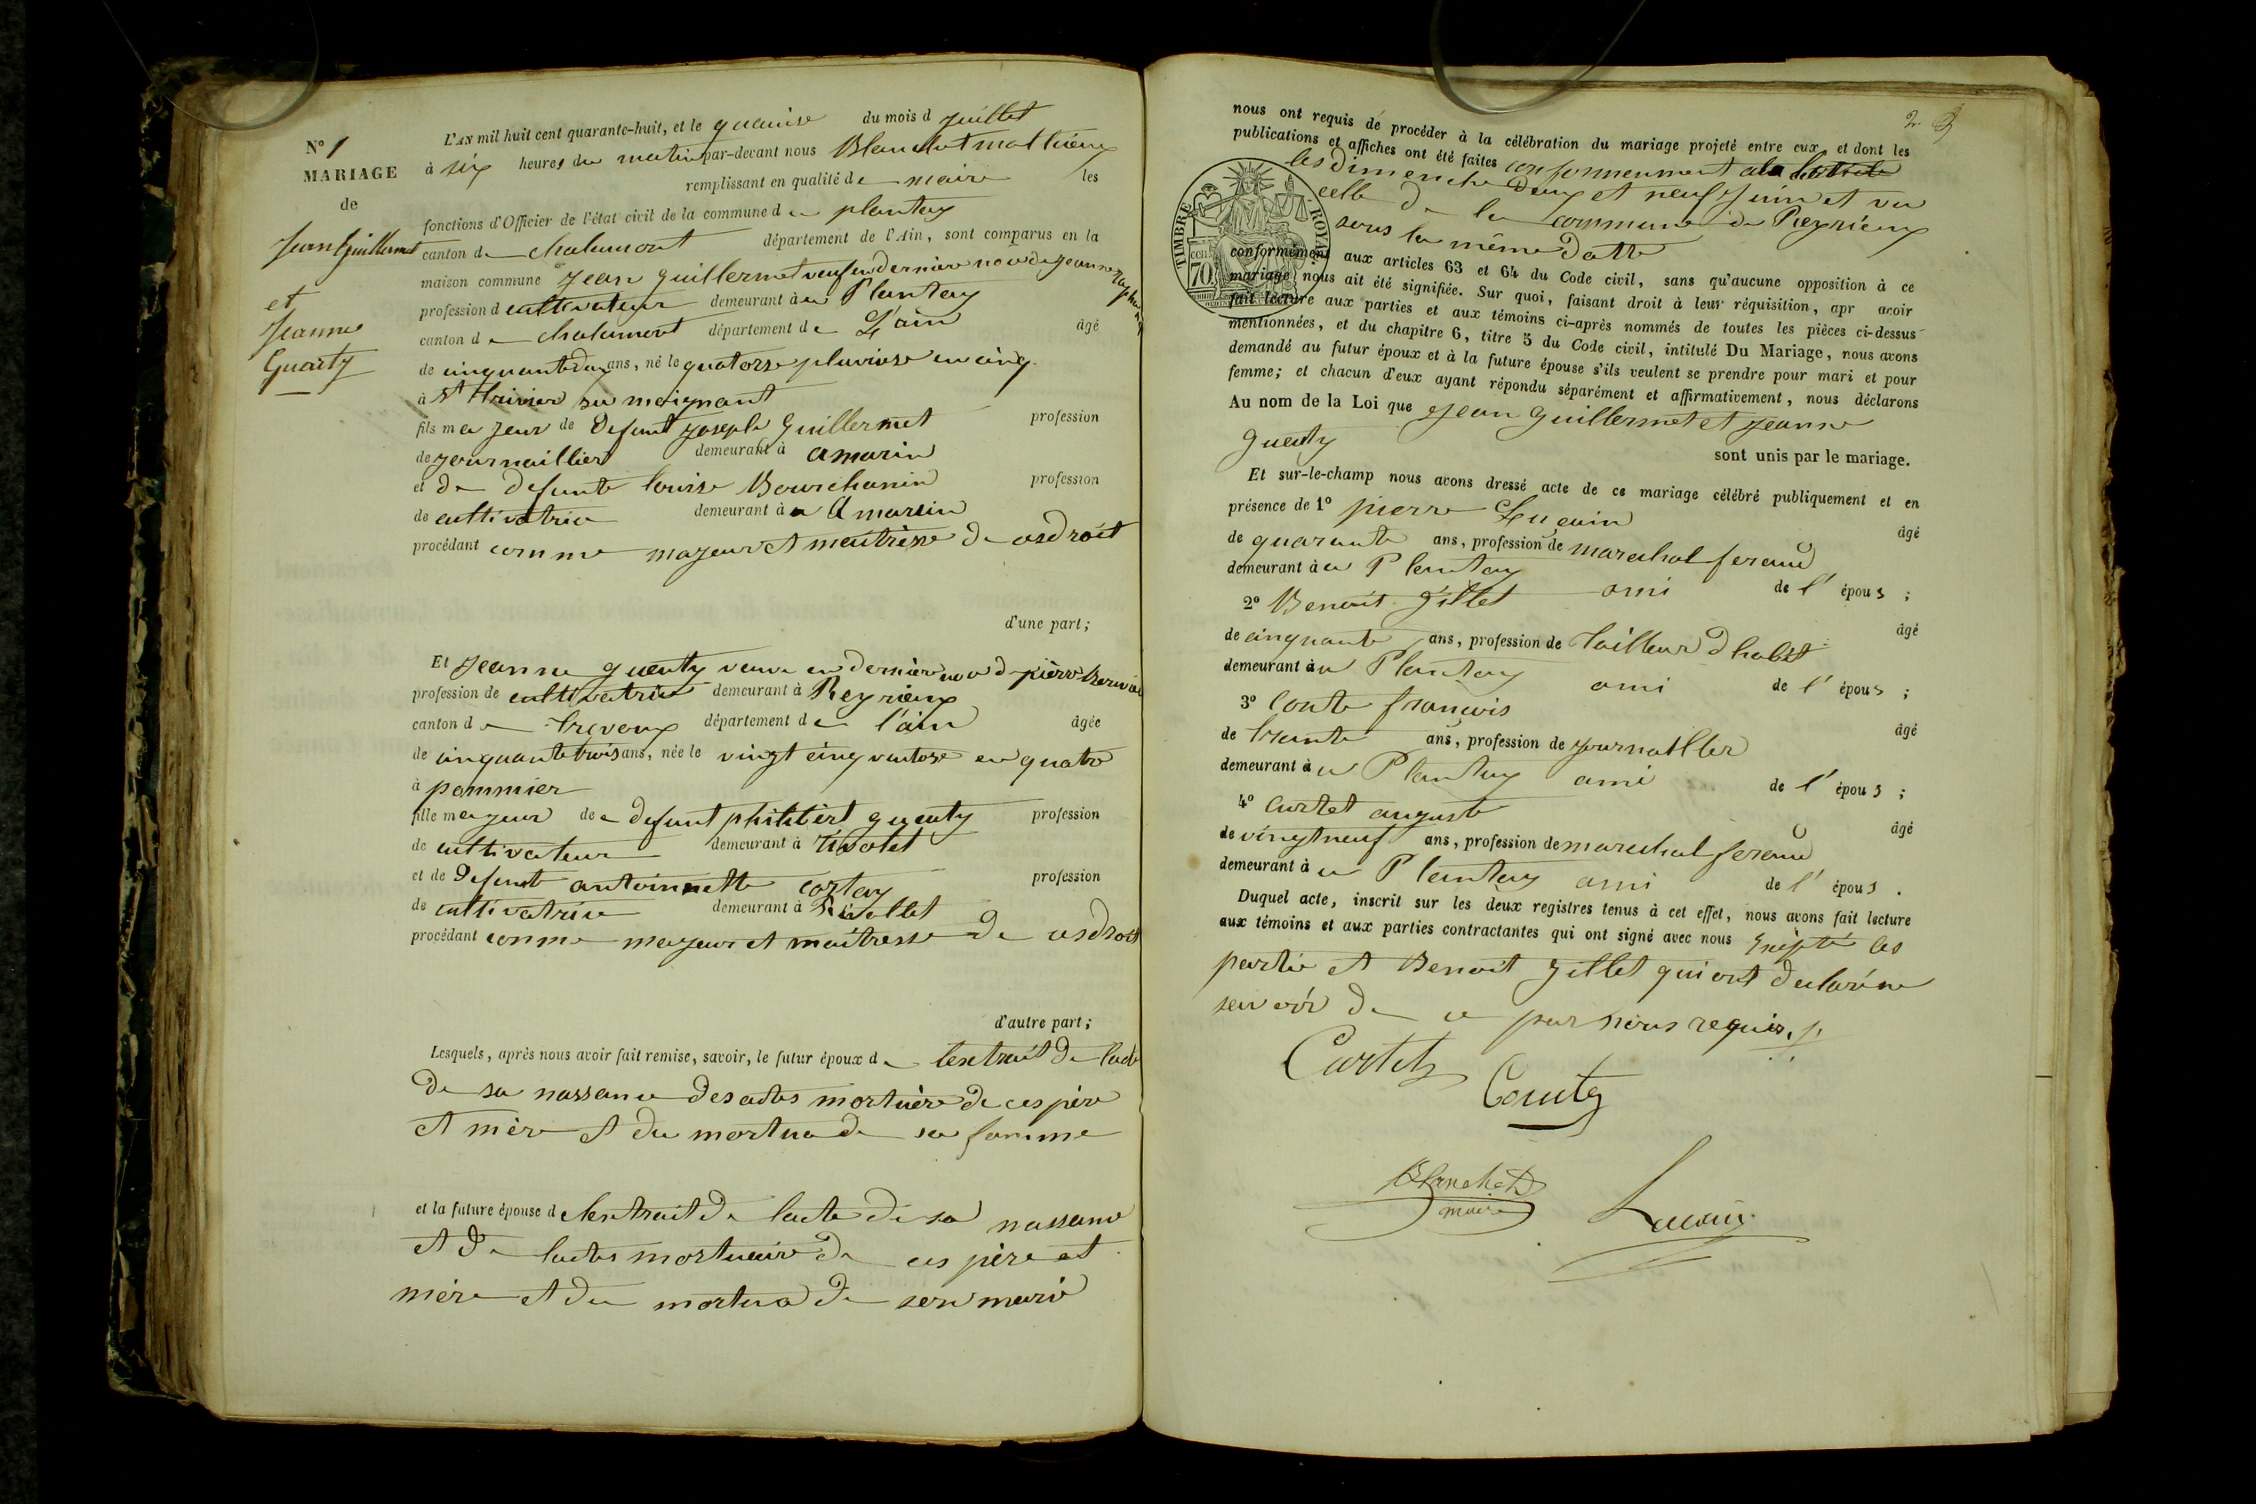 N° 1
MARIAGE
de
Jean Guillermet
et
Jeanne
Guaity
L'AN mil huit cent quarante-huit, et le quainse du mois d juillet
à six heures du matin par-devant nous Blanchet mathieux
remplissant en qualité de maire les
fonctions d'Officier de l'état civil de la commune de plantay
canton de chalamont département de l'Ain, sont comparus en la
maison commune Jean guillermet veuf en dernière noce de Jeanne
profession d cultivateur demeurant à u Plantay
canton de chalamont département de L'ain âgé
de cinquante deux ans, né le quatorse pluviose an cinq
à St trivier su moignant
fils majeur de defunt joseph guillermet profession
de journaillier demeurant à amarin
et de defunte louise Bourchanin profession
de cultivatrice demeurant à a Amarein
procédant comme majeur et meutresse de ces droit
d'une part;
Et jeanne guenty veuve en dernière noce d pierre
profession de cultivatrice demeurant à Reyrieux
canton de trevoux département de l'ain âgée
de cinquante trois ans, née le vingt cinq vantose an quatre
à pommier
fille majeur de defunt philibert guenty profession
de cultivateur demeurant à
et de defunte antoinnette cortay profession
de cultivatrice demeurant à
procédant comme majeur et maitresse de ces droit
d'autre part;
Lesquels, après nous avoir fait remise, savoir, le futur époux de lextrait de lacte
de sa nassance des actes mortuère de ces père
et mère et du mortua de sa famme
et la future épouse d lextrait de lacte de sa nassance
et de lactes mortuaire de ces père et
mère et du mortua de son mari
2.
nous ont requis de procéder à la célébration du mariage projeté entre eux et dont les
publications et affiches ont été faites conformement a la
les Dimenche deux et neuf juin et vu
celle de la commune de Reyrieux
sous la même datte
TIMBRE ROYAL
70 cen
conformément aux articles 63 et 64 du Code civil, sans qu'aucune opposition à ce
mariage nous ait été signifiée. Sur quoi, faisant droit à leur réquisition, apr avoir
fait lecture aux parties et aux témoins ci-après nommés de toutes les pièces ci-dessus
mentionnées, et du chapitre 6, titre 5 du Code civil, intitulé Du Mariage, nous avons
demandé au futur époux et à la future épouse s'ils veulent se prendre pour mari et pour
femme; et chacun d'eux ayant répondu séparément et affirmativement, nous déclarons
Au nom de la Loi que jean guillermet et jeanne
guenty
sont unis par le mariage.
Et sur-le-champ nous avons dressé acte de ce mariage célébré publiquement et en
présence de 1° pierre Lucain âgé
de quarante ans, profession de marechal ferand
demeurant à u Plantay ami de l' épous ;
2° Benoit gillet âgé
de cinquante ans, profession de tailleur d habit
demeurant à u Plantay ami de l' épous ;
3° Conte francois âgé
de trente ans, profession de journallier
demeurant à u Plantay ami de l' épous ;
4° Curtet auguste âgé
de vingt neuf ans, profession de marechal ferand
demeurant à u Plantay ami de l' épous .
Duquel acte, inscrit sur les deux registres tenus à cet effet, nous avons fait lecture
aux témoins et aux parties contractantes qui ont signé avec nous exsèpté les
partie et Benoit gillet qui ont declaré ne
savoir de ce par nous requis.
Curtet
Conte
Blanchet
maire
Lucain